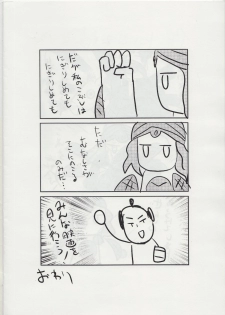 だが私のこぶしは
にぎりしめても
にぎりしめても
ただ
むなしさが
てにのこる
のみだ…
みんな映画を
見に行こう!
おわり